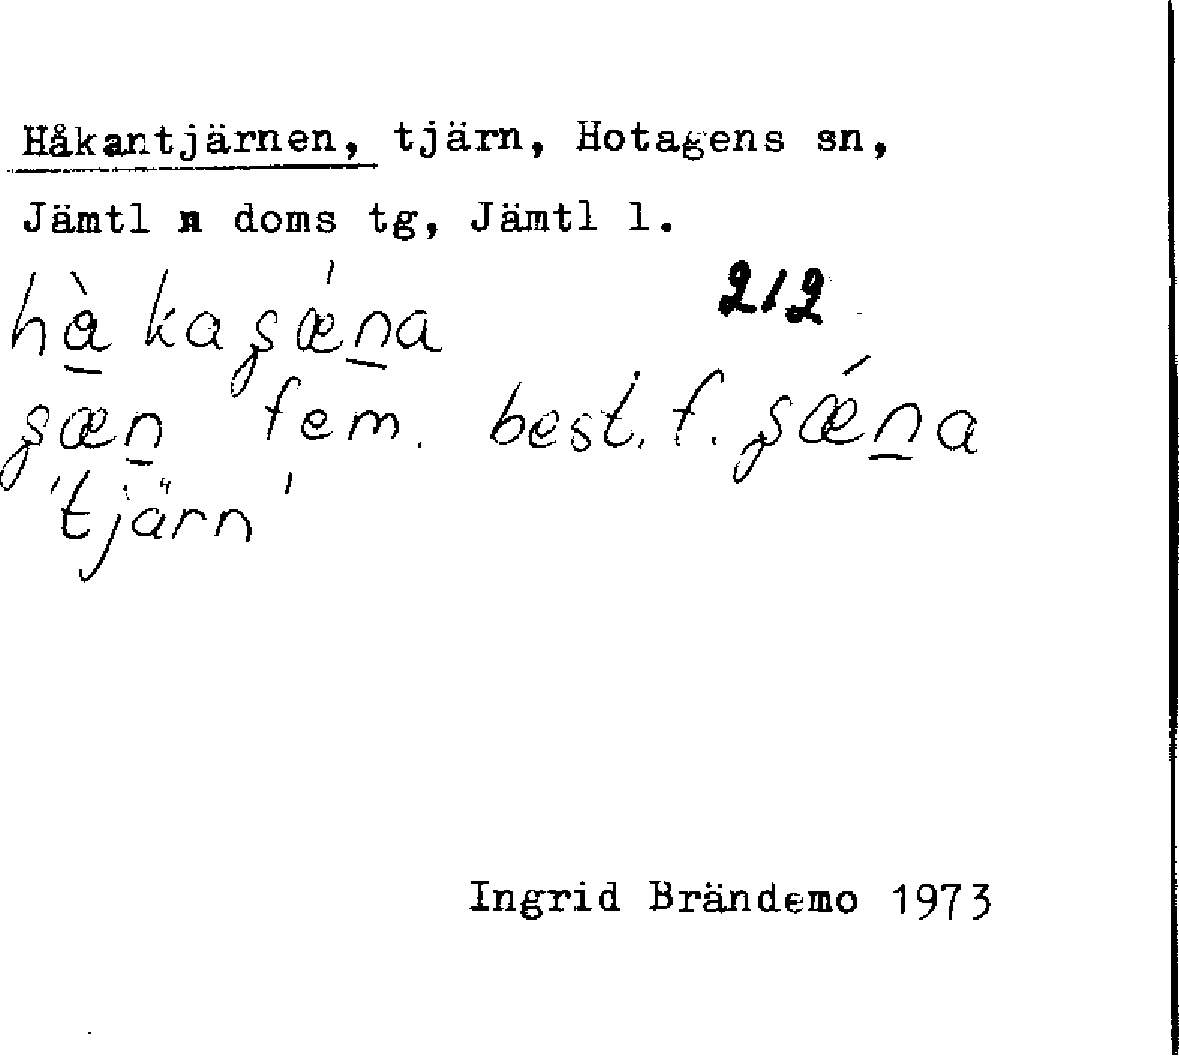 Håkantjärnen, tjärn, Hotagens sn,
Jämtl n doms tg, Jämtl l.
212
hà̠kaʂǽn̠a
ʂæn̠ fem. best. f. ʂǽn̠a
'tjärn'
Ingrid Brändemo 1973